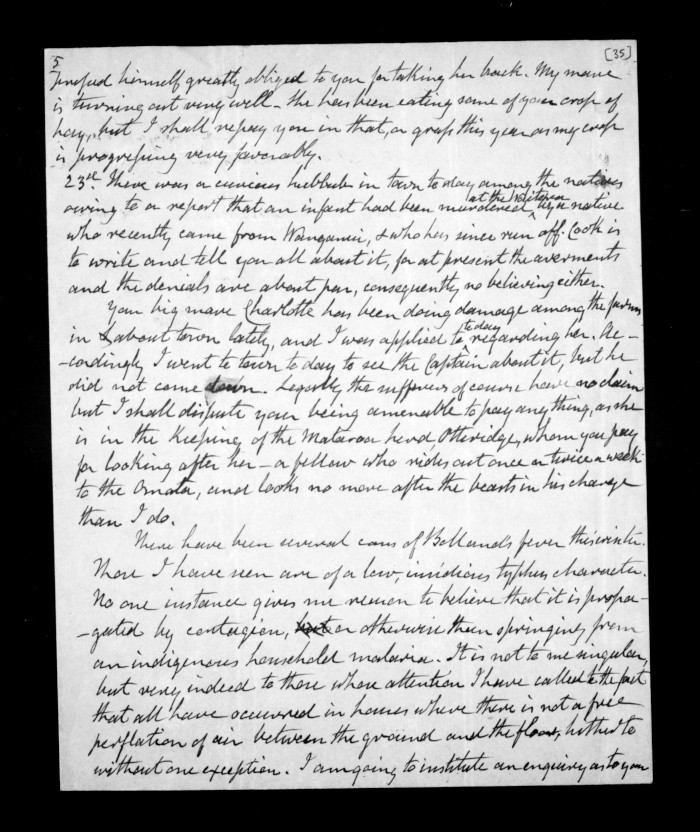 5
[35]
professed himself greatly obliged to you for taking her back. My mare
is turning out very well - she has been eating some of your crop of
hay, but I shall repay you in that, or grass this year as my crop
is progressing very favorably.
23rd. There was a curious hubbub in town to day among the natives
at the
owing to a report that an infant had been murdered by a native
who recently came from Wanganui, & who has since run off. Cook is
to write and tell you all about it, for at present the averments
and the denials are about par, consequently no believing either.
Your big mare Charlotte has been doing damage among the farms
to day
in & about town lately, and I was applied to regarding her. Ac-
-cordingly I went to town to day to see the Captain about it, but he
did not come down. Legally, the sufferers of course have no claim
but I shall dispute your being amenable to pay anything, as she
is in the Keeping of the Mataroa herd Otteridge, whom you pay
for looking after her - a fellow who rides out once or twice a week
to the Omata, and looks no more after the beasts in his charge
than I do.
There have been several cases of Bolland's fever this winter.
Those I have seen are of a low, insidious typhus character.
No one instance gives me reason to believe that it is propa-
-gated by contagion, or otherwise than springing from
an indigenous household malaria. It is not to me singular,
but very indeed to those whose attention I have called to the fact
that all have occurred in houses where there is not a free
perflation of air between the ground and the floor, hitherto
without one exception. I am going to institute an enquiry as to you